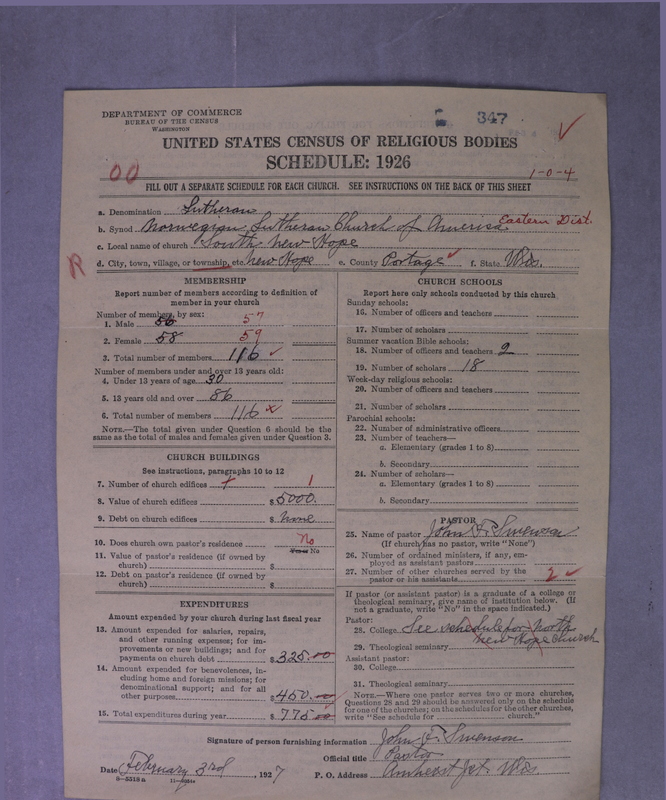 DEPARTMENT OF COMMERCE
BUREAU OF THE CENSUS
WASHINGTON
347
UNITED STATES CENSUS OF RELIGIOUS BODIES
SCHEDULE: 1926
00
1-0-4
FILL OUT A SEPARATE SCHEDULE FOR EACH CHURCH. SEE INSTRUCTIONS ON THE BACK OF THIS SHEET
a. Denomination Lutheran
b. Synod Norwegian Lutheran Church of America Eastern Dist.
c. Local name of church South New Hope
R
d. City, town, village, or township, etc. New Hope e. County Portage f. State Wis.
MEMBERSHIP
Report number of members according to definition of
member in your church
Number of members, by sex:
1. Male 56 57
2. Female 58 59
3. Total number of members 116
Number of members under and over 13 years old:
4. Under 13 years of age 30
5. 13 years old and over 86
6. Total number of members 116
NOTE.—The total given under Question 6 should be the
same as the total of males and females given under Question 3.
CHURCH BUILDINGS
See instructions, paragraphs 10 to 12
7. Number of church edifices 1
8. Value of church edifices $5000.
9. Debt on church edifices $ None
10. Does church own pastor's residence No
Yes or No
11. Value of pastor's residence (if owned by
church) $
12. Debt on pastor's residence (if owned by
church) $
EXPENDITURES
Amount expended by your church during last fiscal year
13. Amount expended for salaries, repairs,
and other running expenses; for im-
provements or new buildings; and for
payments on church debt $325.00
14. Amount expended for benevolences, in-
cluding home and foreign missions; for
denominational support; and for all
other purposes $450.00
15. Total expenditures during year $775.00
CHURCH SCHOOLS
Report here only schools conducted by this church
Sunday schools:
16. Number of officers and teachers
17. Number of scholars
Summer vacation Bible schools:
18. Number of officers and teachers 2
19. Number of scholars 18
Week-day religious schools:
20. Number of officers and teachers
21. Number of scholars
Parochial schools:
22. Number of administrative officers
23. Number of teachers—
a. Elementary (grades 1 to 8)
b. Secondary
24. Number of scholars—
a. Elementary (grades 1 to 8)
b. Secondary
PASTOR
25. Name of pastor John F. Swenson
(If church has no pastor, write "None")
26. Number of ordained ministers, if any, em-
ployed as assistant pastors
27. Number of other churches served by the
pastor or his assistants 2
If pastor (or assistant pastor) is a graduate of a college or
theological seminary, give name of institution below. (If
not a graduate, write "No" in the space indicated.)
Pastor:
28. College See schedule for North
New Hope Church
29. Theological seminary
Assistant pastor:
30. College
31. Theological seminary
NOTE.—Where one pastor serves two or more churches,
Questions 28 and 29 should be answered only on the schedule
for one of the churches; on the schedules for the other churches,
write "See schedule for church."
Signature of person furnishing information John F. Swenson
Official title Pastor
Date February 3rd, 1927 P. O. Address Amherst Jct. Wis.
8-5318a